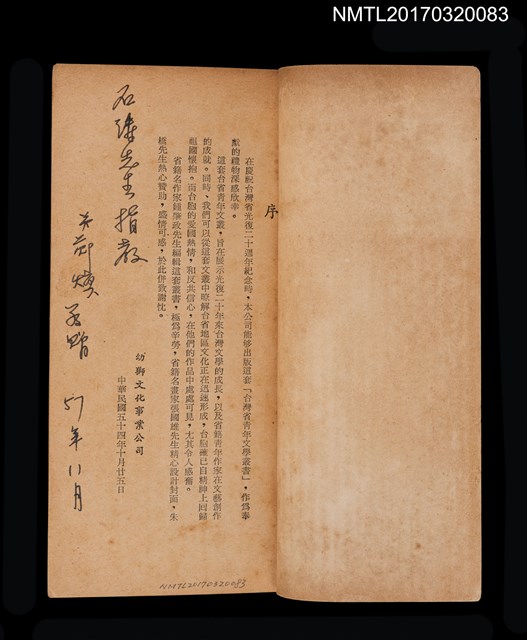 NMTL20170320083
序
在慶祝台灣省光復二十週年紀念時，本公司能够出版這套「台灣省青年文學叢書」，作爲奉
獻的禮物深感欣幸。
這套台省青年文叢，旨在展示光復二十年來台灣文學的成長，以及省籍青年作家在文藝創作
的成就。同時、我們可以從這套文叢中瞭解台省地區文化正在迅速形成，台胞確已自精神上回歸
祖國懷抱。而台胞的愛國熱情，和反共信心，在他們的作品中處處可見，尤其令人感奮。
省籍名作家鍾肇政先生編輯這套叢書，極爲辛勞，省籍名畫家張國雄先生精心設計封面，朱
橋先生熱心贊助，盛情可感，於此併致謝忱。
幼獅文化事業公司
中華民國五十四年十月廿五日
石濤先生指教
57年11月
NMTL20170320083